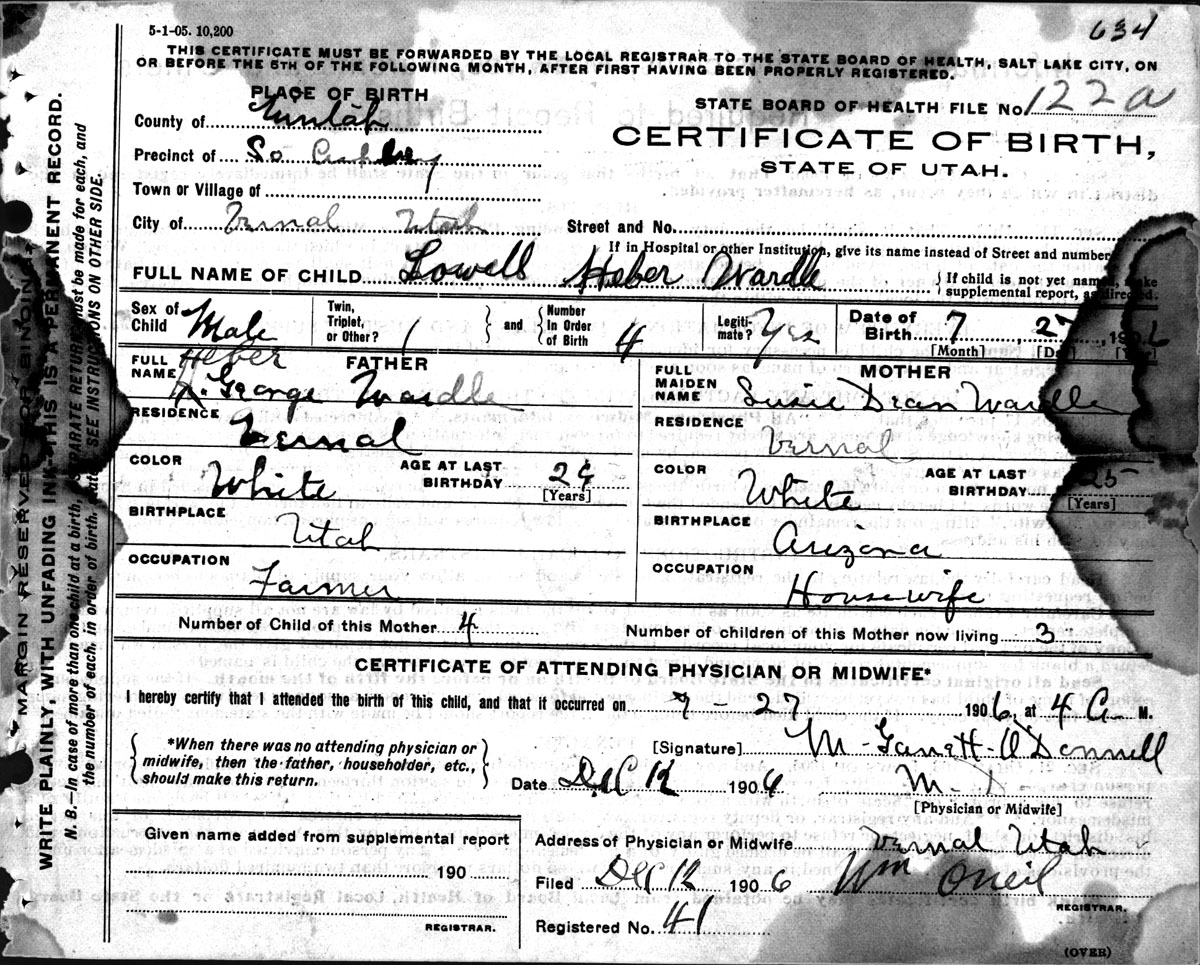 5-1-05. 10,200
634
THIS CERTIFICATE MUST BE FORWARDED BY THE LOCAL REGISTRAR TO THE STATE BOARD OF HEALTH, SALT LAKE CITY, ON
OR BEFORE THE 5TH OF THE FOLLOWING MONTH, AFTER FIRST HAVING BEEN PROPERLY REGISTERED.
PLACE OF BIRTH
STATE BOARD OF HEALTH FILE No. 122a
County of
CERTIFICATE OF BIRTH,
STATE OF UTAH.
Precinct of So
Town or Village of
City of Vernal Utah
Street and No.
If in Hospital or other Institution, give its name instead of Street and number
FULL NAME OF CHILD Lowell Heber Wardle
{ If child is not yet named, make
supplemental report, as directed.
Sex of Child Male
Twin, Triplet, or Other? 1
} and { Number In Order of Birth 4
Legiti-mate? Yes
Date of Birth 7 27, 190
[Month] [Day] [Year]
FATHER
FULL NAME Heber George Wardle
RESIDENCE
Vernal
COLOR White
AGE AT LAST BIRTHDAY
[Years]
BIRTHPLACE
Utah
OCCUPATION
Farmer
MOTHER
FULL MAIDEN NAME Dean Wardle
RESIDENCE
Vernal
COLOR White
AGE AT LAST BIRTHDAY 25
[Years]
BIRTHPLACE
Arizona
OCCUPATION
Housewife
Number of Child of this Mother 4
Number of children of this Mother now living 3
CERTIFICATE OF ATTENDING PHYSICIAN OR MIDWIFE*
I hereby certify that I attended the birth of this child, and that it occurred on 7 - 27 1906, at 4 A. M.
{ *When there was no attending physician or
midwife, then the father, householder, etc.,
should make this return. }
[Signature] M. Garrett O'Donnell
Date Dec 1906
M. D
[Physician or Midwife]
Given name added from supplemental report
190
REGISTRAR.
Address of Physician or Midwife Vernal Utah
Filed Dec 1906 Wm Oneil
REGISTRAR.
Registered No. 41
(OVER)
MARGIN RESERVED FOR BINDING
WRITE PLAINLY, WITH UNFADING INK—THIS IS A PERMANENT RECORD.
N. B.—In case of more than one child at a birth, a SEPARATE RETURN must be made for each, and
the number of each, in order of birth, SEE INSTRUCTIONS ON OTHER SIDE.